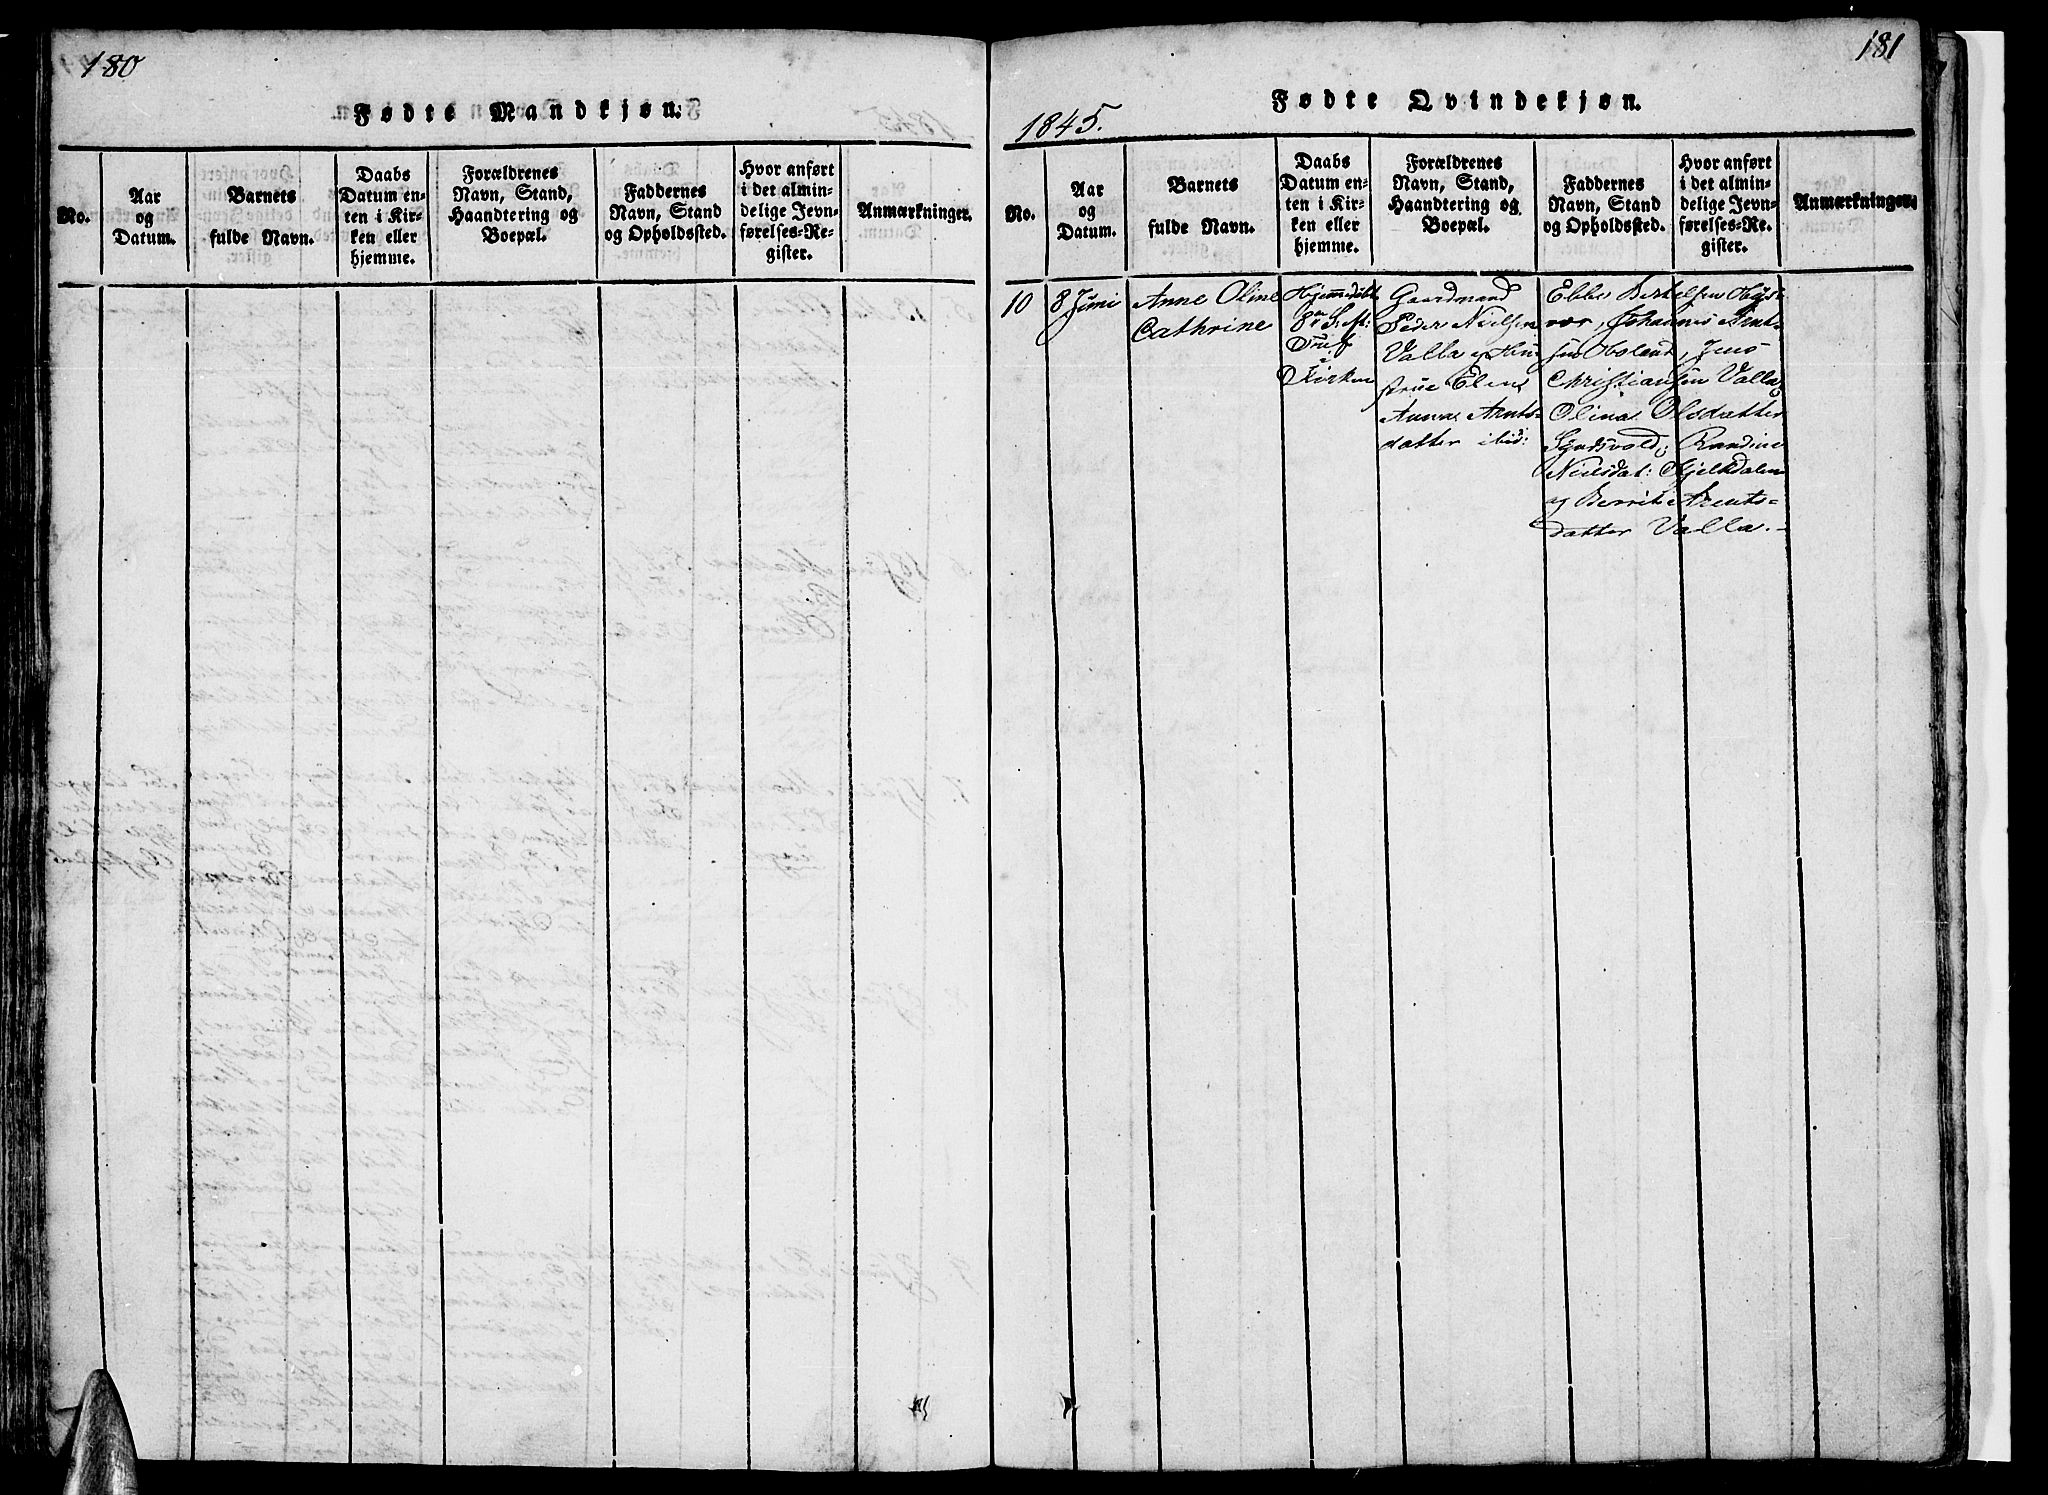 180
Fødte Mandkjøn.
No.
Aar
og
Datum.
Barnets
fulde Navn.
Daabs
Datum en-
ten i Kir-
ken eller
hjemme.
Forældrenes
Navn, Stand,
Haandtering og
Boepæl.
Faddernes
Navn, Stand
og Opholdssted.
Hvor anført
i det almin-
delige Jevn-
førelses-Re-
gister.
Anmærkninger.
181
Fødte Qvindekjøn.
1845.
No.
Aar
og
Datum.
Barnets
fulde Navn.
Daabs
Datum en-
ten i Kir-
ken eller
hjemme.
Forældrenes
Navn, Stand,
Haandtering og
Boepæl.
Faddernes
Navn, Stand
og Opholdssted.
Hvor anført
i det almin-
delige Jevn-
førelses-Re-
gister.
Anmærkninger.
10
8 Juni
Anne Oline
Cathrine
Hjemmedøbt
8
i
Kirken
Gaardmand
Peder Nielsen
Valla og Hu-
strue Elen
Anna Arnts-
datter ibid:
Ebbe Bertelsen
Johannes Arnt-
sen Jens
Christiansen Valla,
Olina Olsdatter
Randine
Nielsdat:
og Berrit Arents-
datter Valla.-